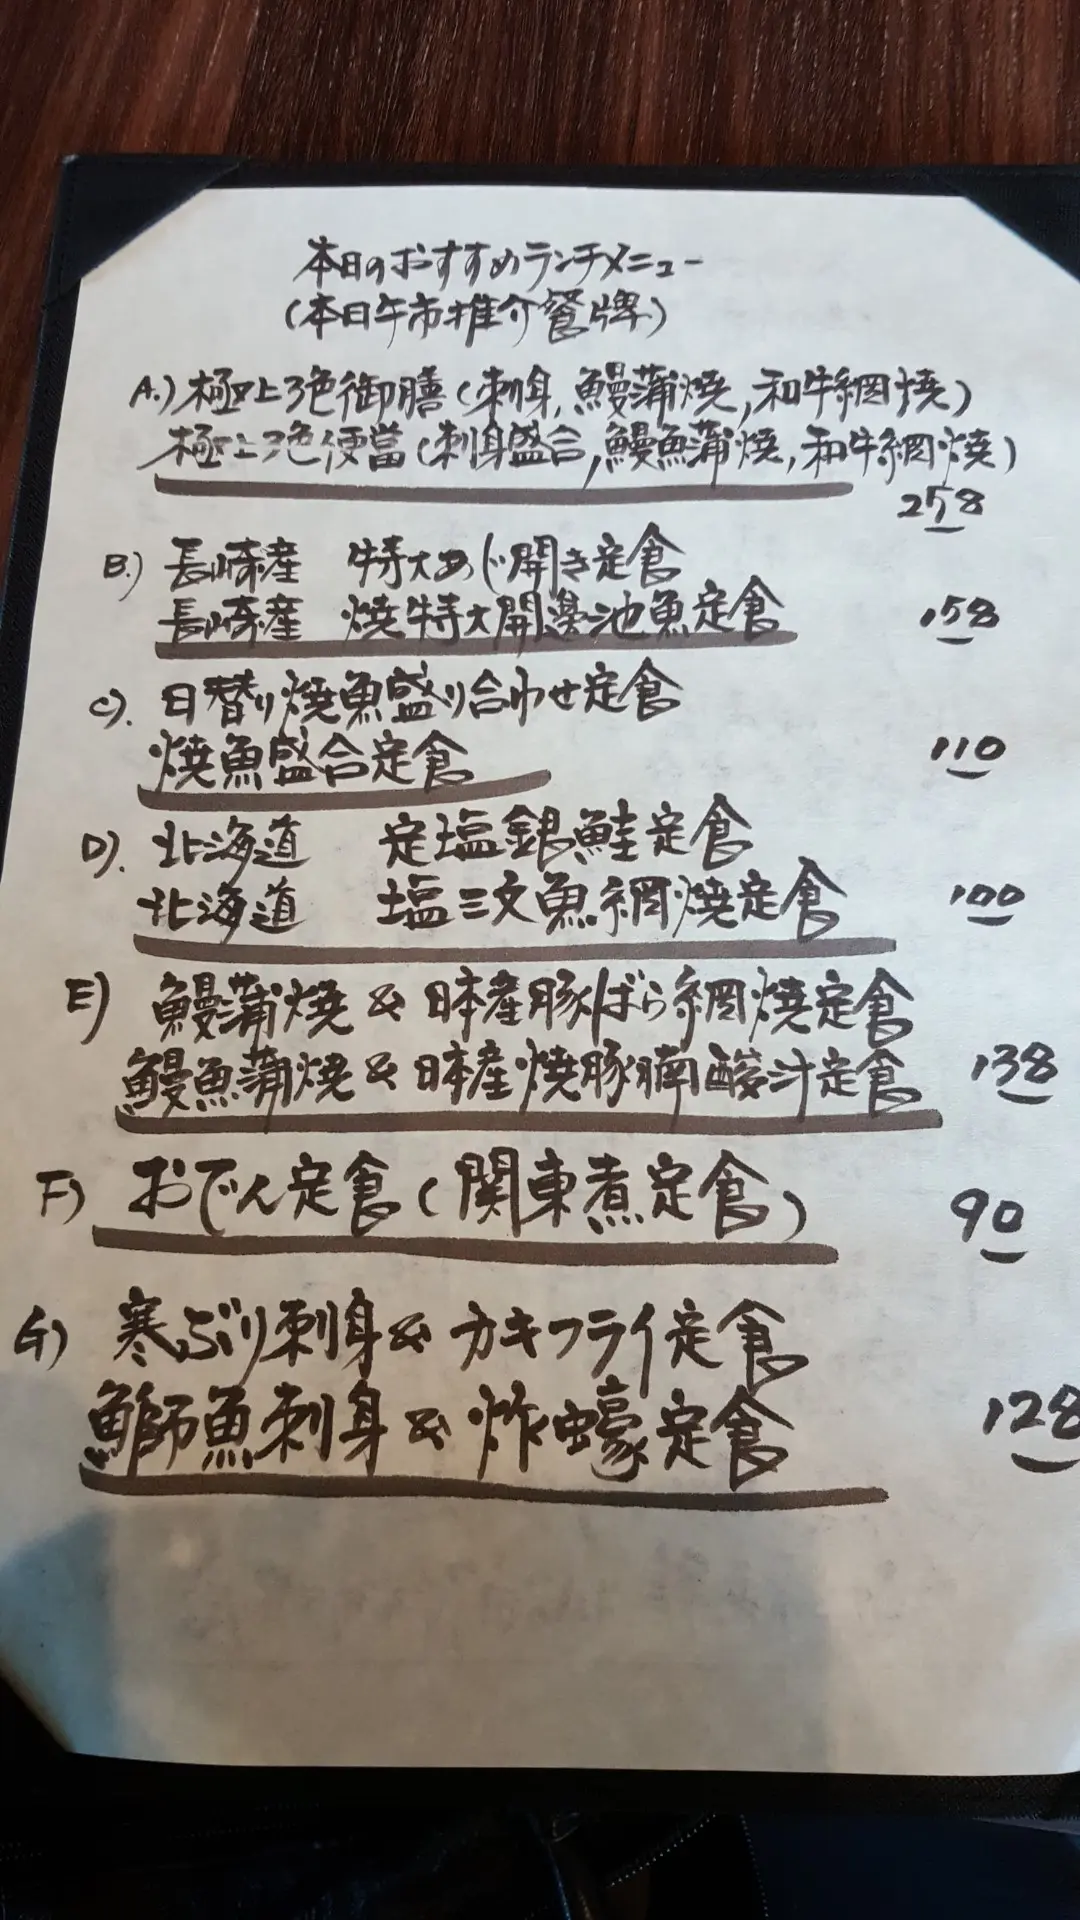 本日のおすすめランチメニュー
(本日午市推介餐牌)
A.) 極上3色御膳 (刺身, 鰻蒲焼, 和牛網焼)
極上3色便當 (刺身盛合, 鰻魚蒲焼, 和牛網焼)
258
B.) 長崎産 特大あじ開き定食
長崎産 焼特大開邊池魚定食 158
C). 日替り焼魚盛り合わせ定食
焼魚盛合定食 110
D). 北海道 定塩銀鮭定食
北海道 塩三文魚網焼定食 100
E) 鰻蒲焼 & 日本産豚ばら網焼定食
鰻魚蒲焼 & 日本産焼豚腩酸汁定食 138
F) おでん定食 (関東煮定食) 90
G) 寒ぶり刺身 & カキフライ定食
鰤魚刺身 & 炸蠔定食 128